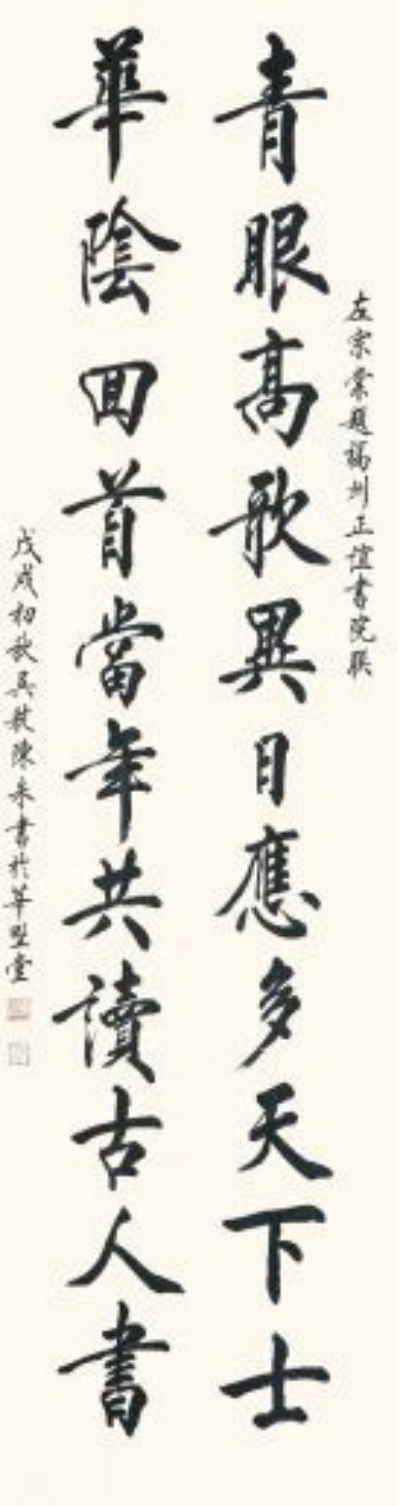 左宗棠題福州正誼書院聯
青眼高歌異日應多天下士
華陰回首當年共讀古人書
戊戌初秋陳書於華堂